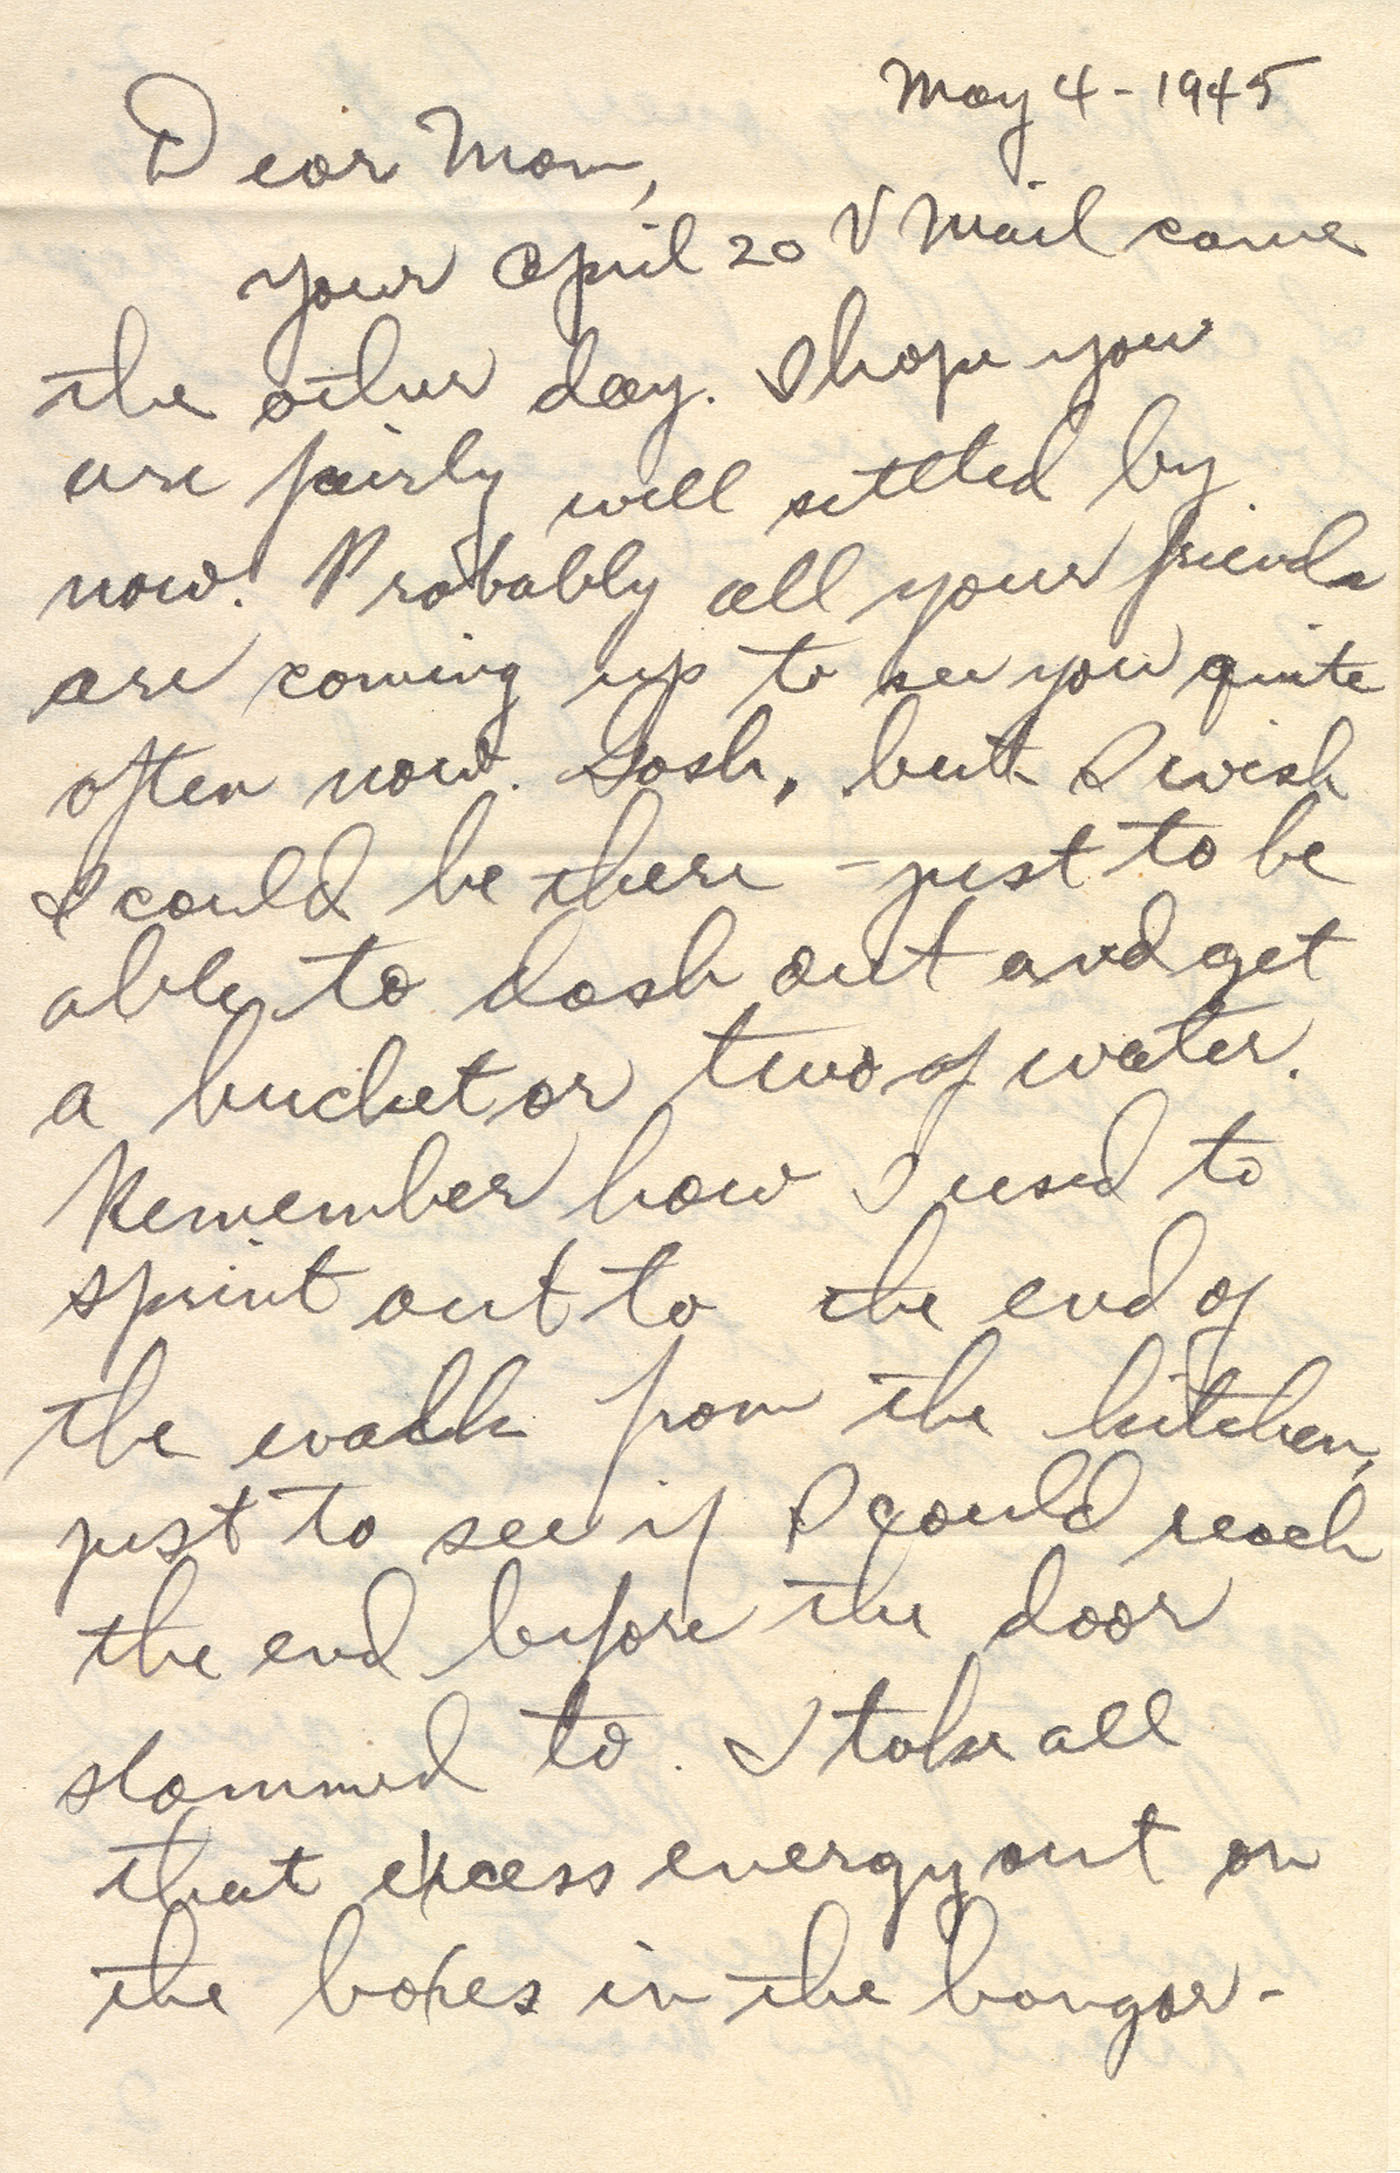 May 4 - 1945
Dear Mom,
Your April 20 V Mail came
the other day. I hope you
are fairly well settled by
now. Probably all your friends
are coming up to see you quite
often now. Gosh, but I wish
I could be there - just to be
able to dash out and get
a bucket or two of water.
Remember how I used to
sprint out to the end of
the walk from the kitchen,
just to see if I could reach
the end before the door
slammed to. I take all
that excess energy out on
the boxes in the hangar -